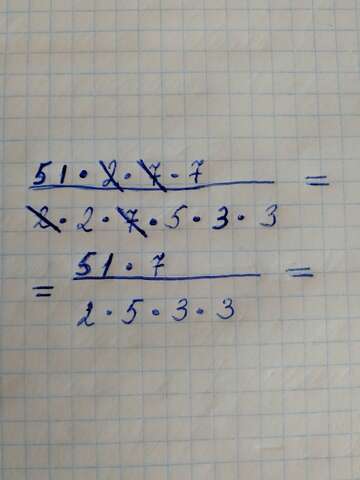 51 · 2 · 7 · 7 =
2 · 2 · 7 · 5 · 3 · 3
= 51 · 7 =
2 · 5 · 3 · 3